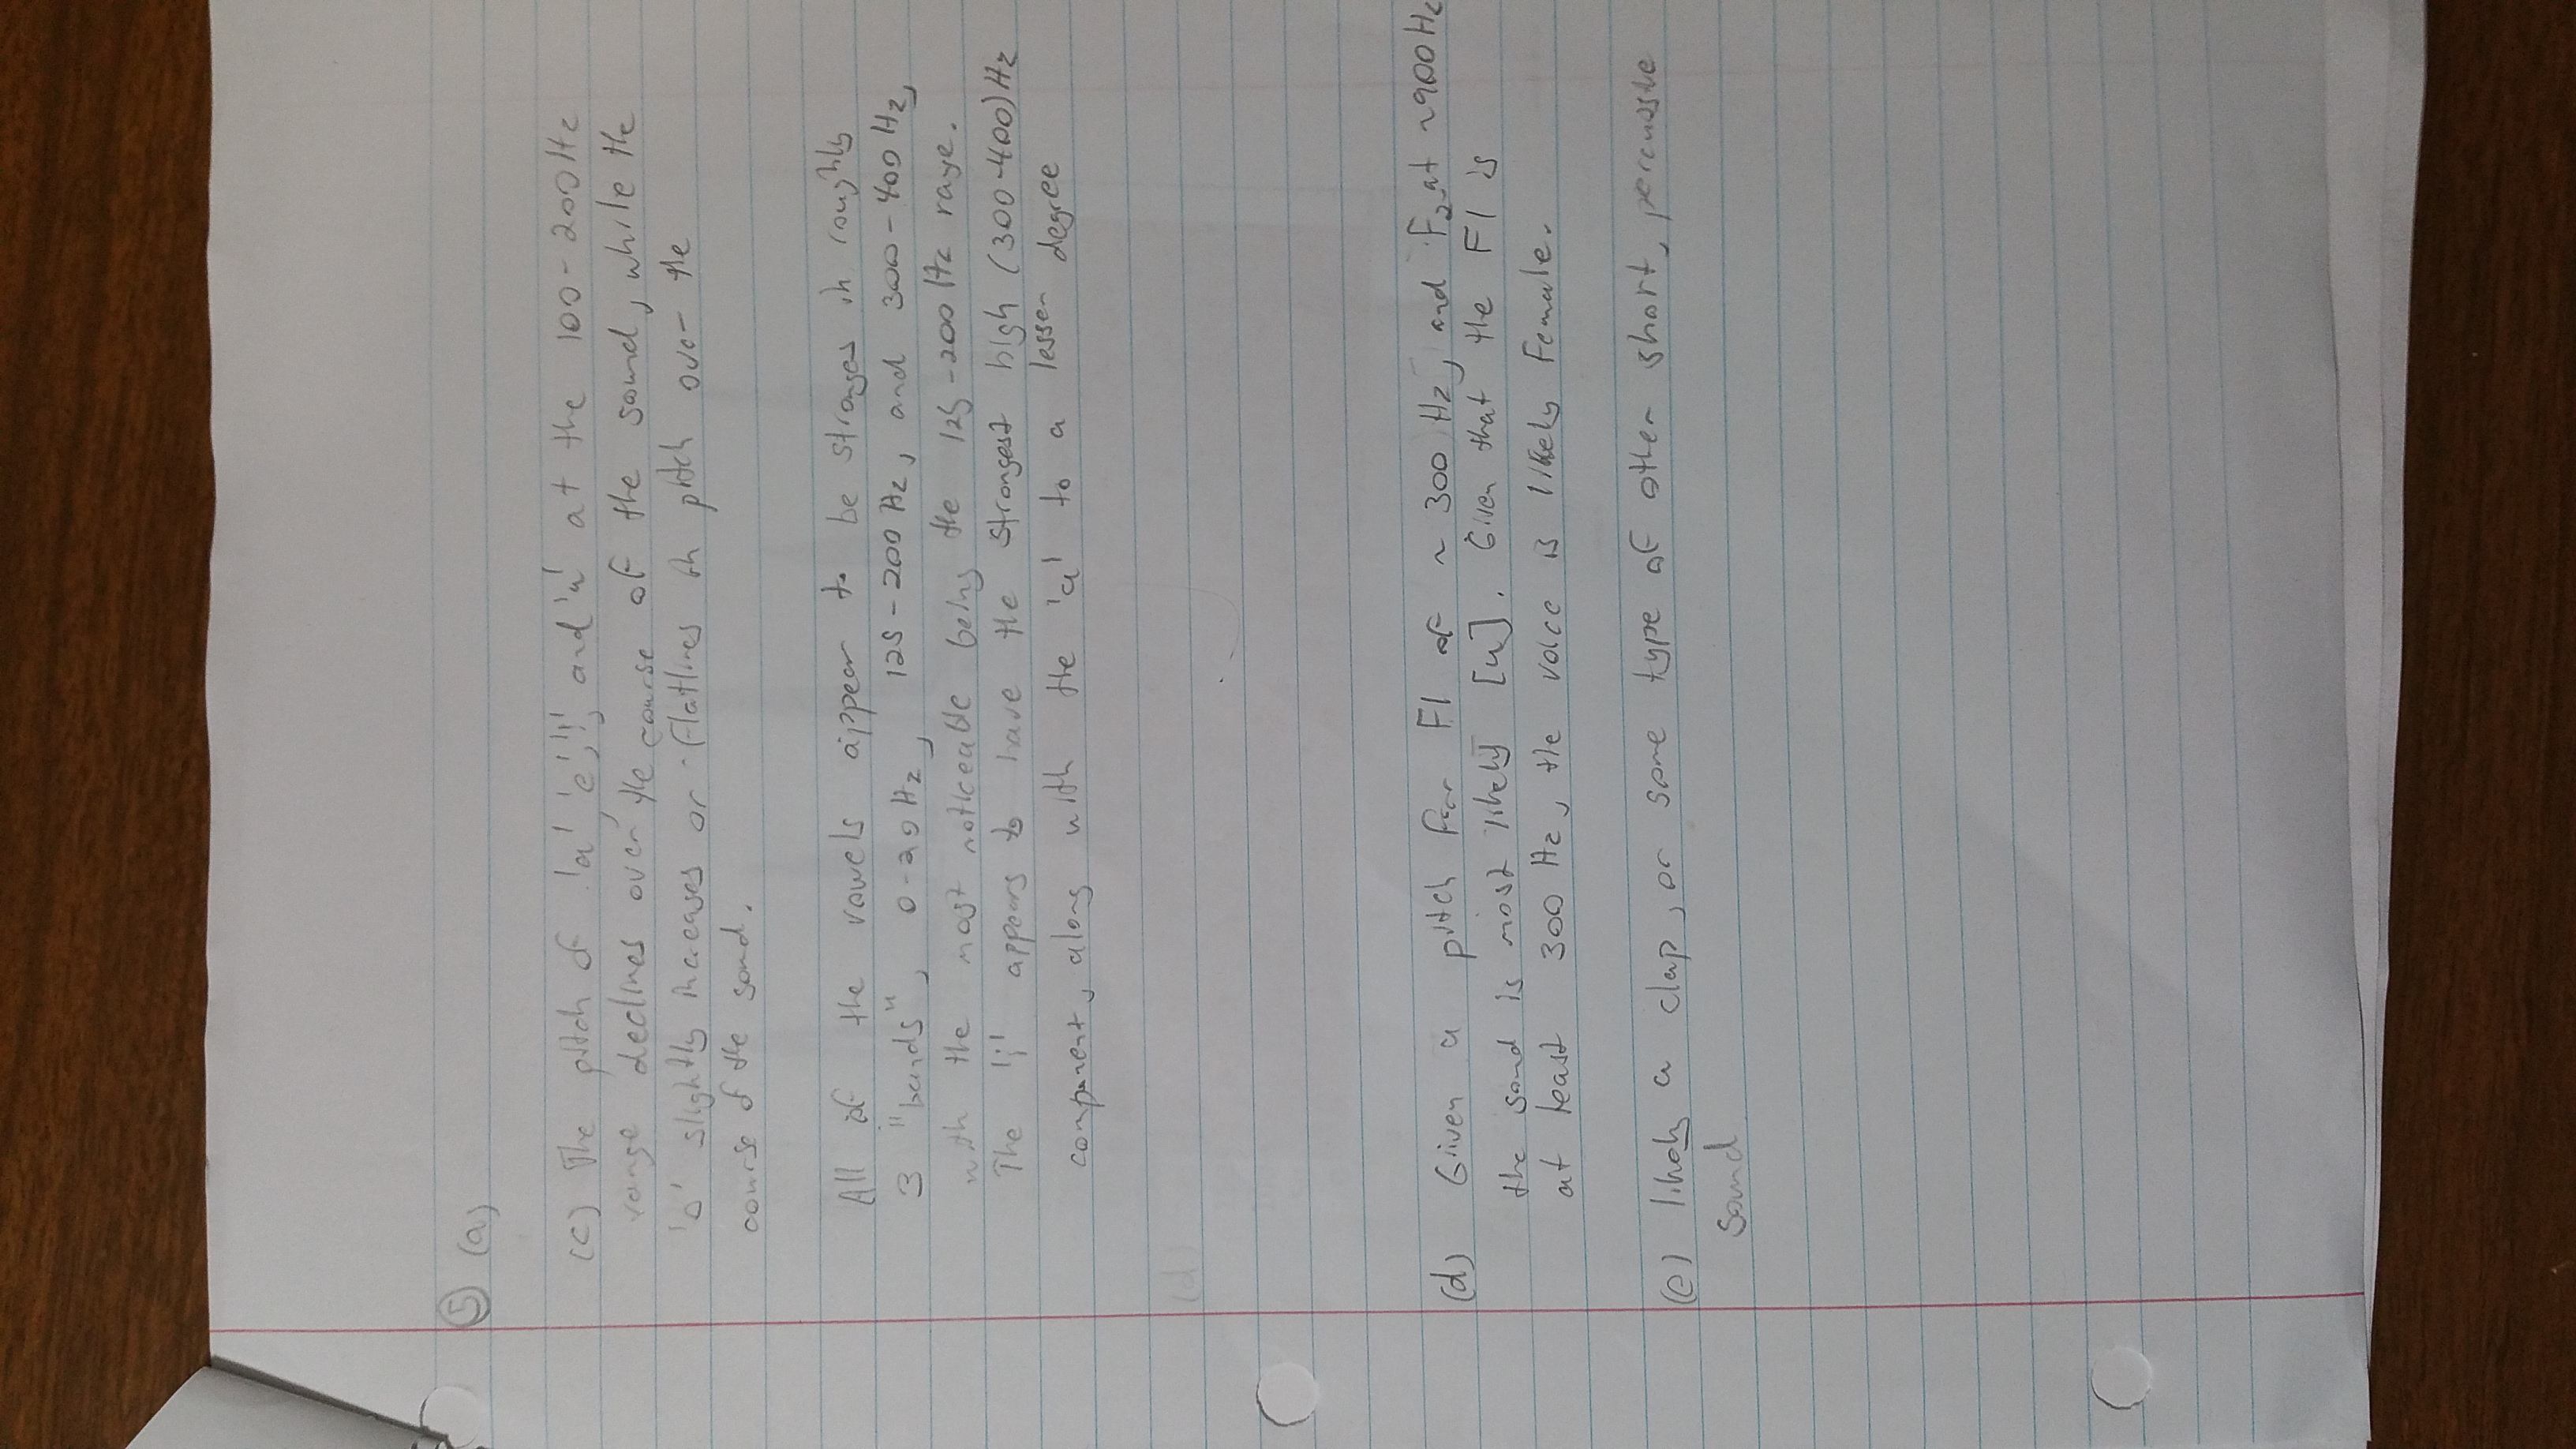 ⑤ (a)
(c) The pitch of 'a' 'e', 'i', and 'u' at the 100-200Hz
range declines over the course of the sound, while the
'o' slightly increases or flatlines in pitch over the
course of the sound.
All of the vowels appear to be stronges in roughly
3 "bands", 0-20Hz, 125-200Hz, and 300-400Hz,
with the most noticeable being the 125-200Hz range.
The 'i' appears to have the strongest high (300-400)Hz
component, along with the 'u' to a lesser degree
(d)
(d) Given a pitch for F1 of ~300Hz, and F2 at ~900Hz
the sound is most likely [u]. Given that the F1 is
at least 300Hz, the voice is likely Female.
(e) likely a clap, or some type of other short, percussive
sound